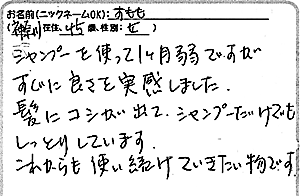 お名前(ニックネームOK): すもも
(神奈川)在住、45歳、性別:(女)
シャンプーを使って1ヶ月弱ですが
すぐに良さを実感しました。
髪にコシが出て、シャンプーだけでも
しっとりしています。
これからも使い続けていきたい物です